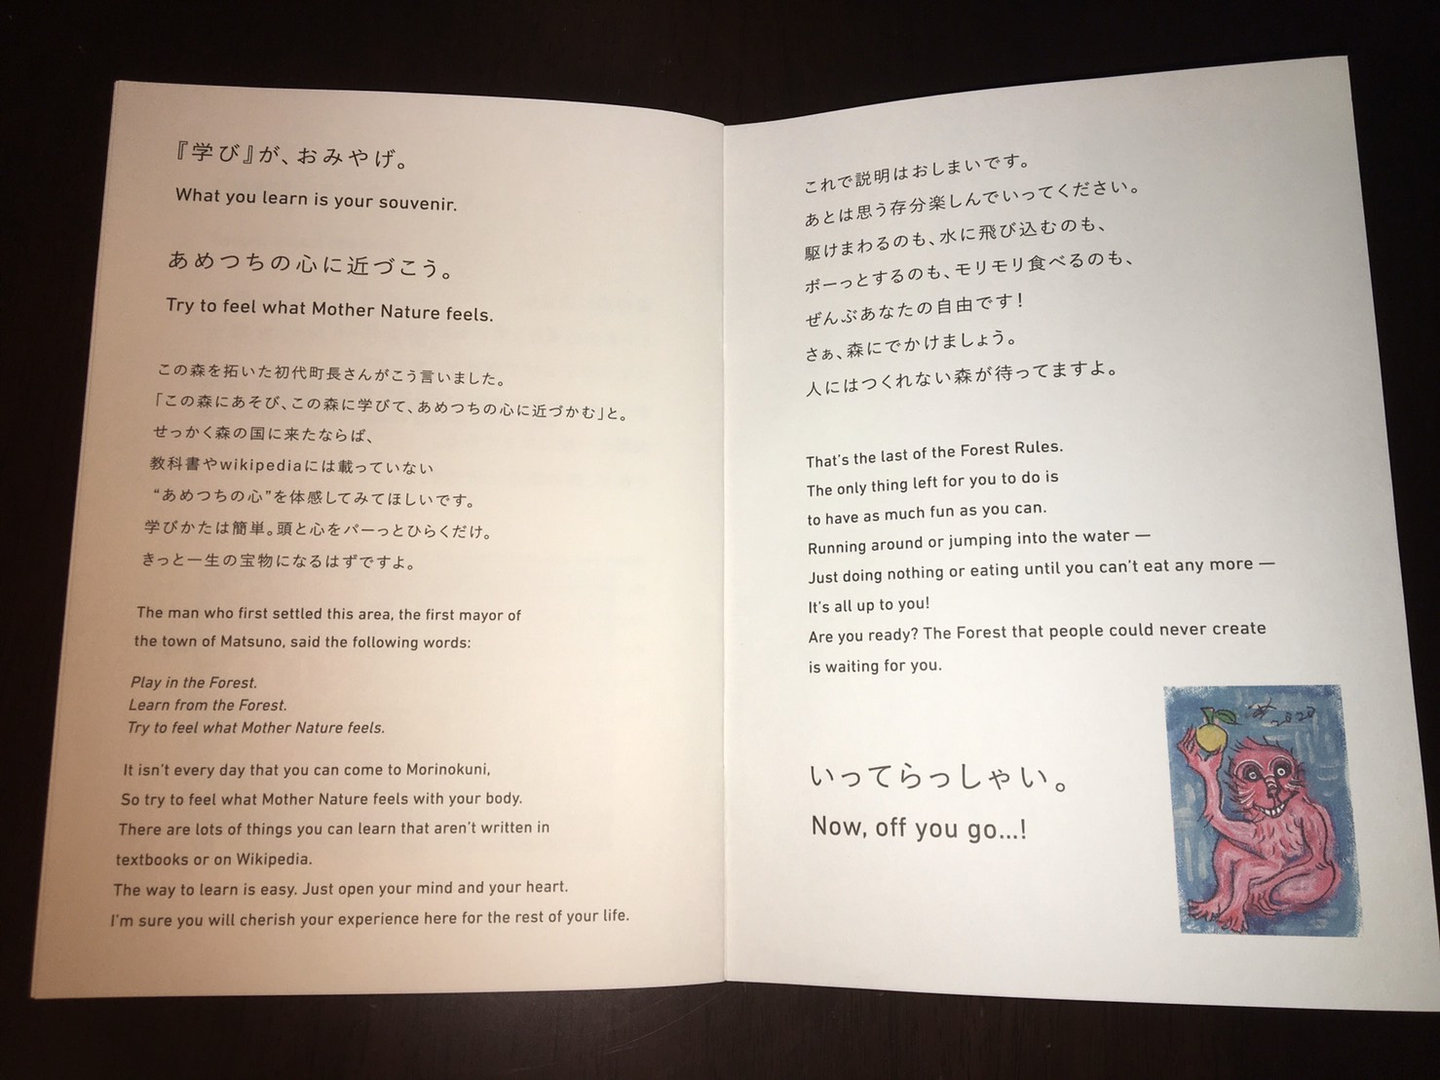 『学び』が、おみやげ。
What you learn is your souvenir.
あめつちの心に近づこう。
Try to feel what Mother Nature feels.
この森を拓いた初代町長さんがこう言いました。
「この森にあそび、この森に学びて、あめつちの心に近づかむ」と。
せっかく森の国に来たならば、
教科書やwikipediaには載っていない
“あめつちの心”を体感してみてほしいです。
学びかたは簡単。頭と心をパーっとひらくだけ。
きっと一生の宝物になるはずですよ。
The man who first settled this area, the first mayor of
the town of Matsuno, said the following words:
Play in the Forest.
Learn from the Forest.
Try to feel what Mother Nature feels.
It isn't every day that you can come to Morinokuni,
So try to feel what Mother Nature feels with your body.
There are lots of things you can learn that aren't written in
textbooks or on Wikipedia.
The way to learn is easy. Just open your mind and your heart.
I'm sure you will cherish your experience here for the rest of your life.
これで説明はおしまいです。
あとは思う存分楽しんでいってください。
駆けまわるのも、水に飛び込むのも、
ボーっとするのも、モリモリ食べるのも、
ぜんぶあなたの自由です！
さぁ、森にでかけましょう。
人にはつくれない森が待ってますよ。
That's the last of the Forest Rules.
The only thing left for you to do is
to have as much fun as you can.
Running around or jumping into the water —
Just doing nothing or eating until you can't eat any more —
It's all up to you!
Are you ready? The Forest that people could never create
is waiting for you.
いってらっしゃい。
Now, off you go...!
2020